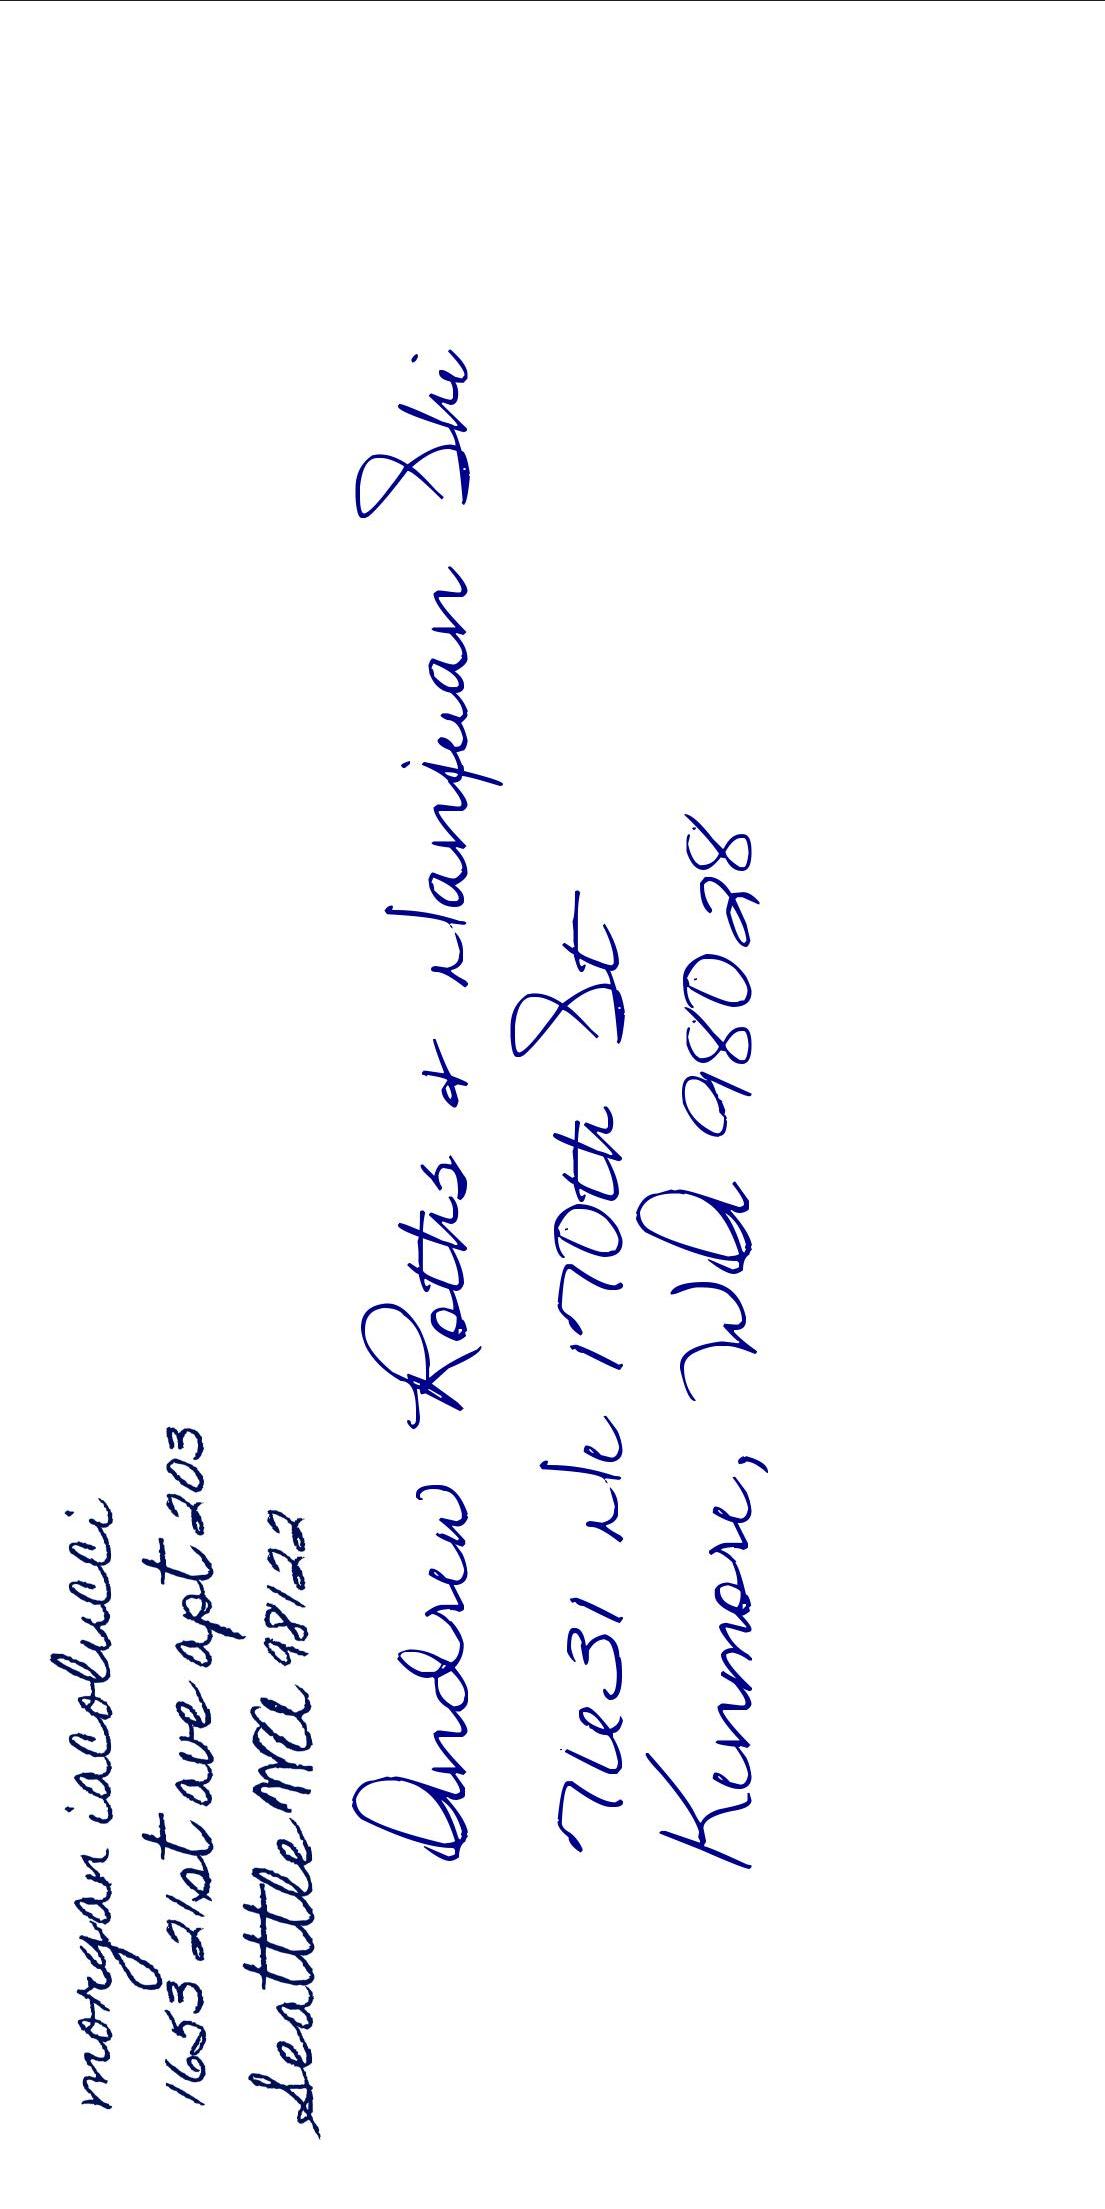 morgan iacolucci
1653 21st ave apt 203
Seattle WA 98122
Andrew Roths & Nanjuan Shi
7631 NE 170th St
Kenmore, WA 98028